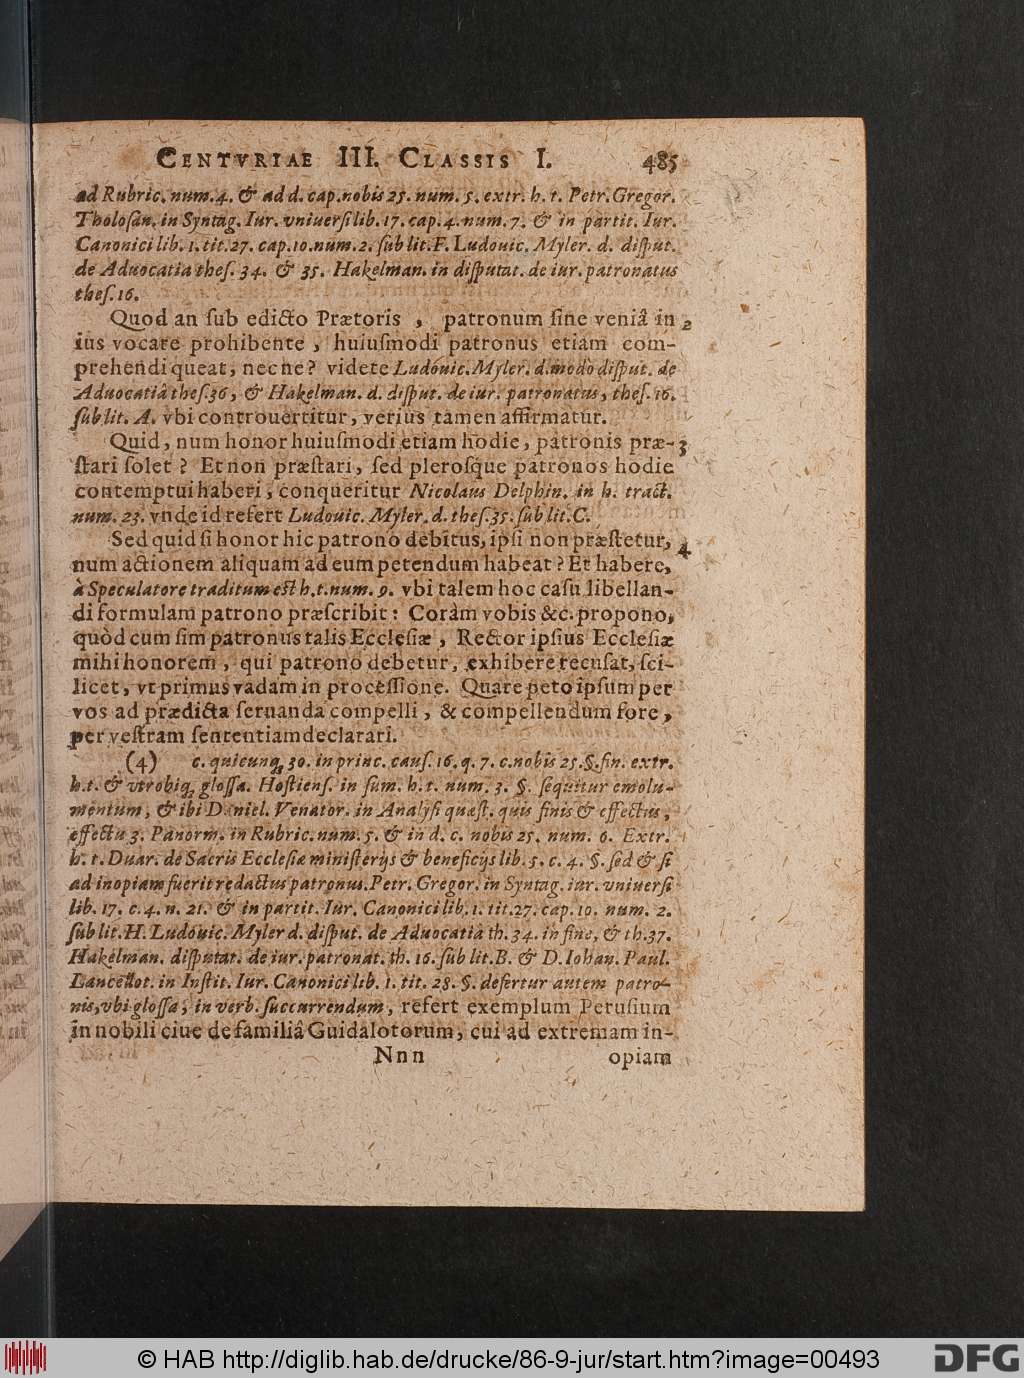 CENTVRIAE III. CLASSIS I. 485
ad Rubric. num. 4. & ad d. cap. nobis 25. num. 5. extr. h. t. Petr. Gregor.
Tholosan. in Syntag. Iur. vniuersi lib. 17. cap. 4. num. 7. & in partit. Iur.
Canonici lib. 1. tit. 27. cap. 10. num. 2. sub lit. F. Ludouic. Myler. d. disput.
de Aduocatia thes. 34. & 35. Hakelman. in disputat. de iur. patronatus
thes. 16.
Quod an sub edicto Prætoris, patronum sine veniâ in 2
ius vocare prohibente, huiusmodi patronus etiam com-
prehendi queat, nec ne? videte Ludouic. Myler. d. modò disput. de
Aduocatiâ thes. 36, & Hakelman. d. disput. de iur. patronatus, thes. 16.
sub lit. A. vbi controuertitur, verius tamen affirmatur.
Quid, num honor huiusmodi etiam hodie, patronis præ- 3
stari solet? Et non præstari, sed plerosq́ue patronos hodie
contemptui haberi, conqueritur Nicolaus Delphin. in h. tract.
num. 23. vnde id refert Ludouic. Myler. d. thes. 35. sub lit. C.
Sed quid si honor hic patrono debitus, ipsi non præstetur, 4
num actionem aliquam ad eum petendum habeat? Et habere,
à Speculatore traditum est h. t. num. 9. vbi talem hoc casu libellan-
di formulam patrono præscribit: Coràm vobis &c. propono,
quòd cum sim patronus talis Ecclesiæ, Rector ipsius Ecclesiæ
mihi honorem, qui patrono debetur, exhibere recusat, sci-
licet, vt primus vadam in processione. Quare peto ipsum per
vos ad prædicta seruanda compelli, & compellendum fore,
per vestram sententiam declarari.
(4) c. quicunq; 30. in princ. caus. 16. q. 7. c. nobis 25. §. fin. extr.
h. t. & vtrobiq; glossa. Hostiens. in sum. h. t. num. 3. §. sequitur emolu-
mentum, & ibi Daniel. Venator. in Analysi quæst. quis finis & effectus,
effectu 3. Panorm. in Rubric. num. 5. & in d. c. nobis 25. num. 6. Extr.
h. t. Duar. de Sacris Ecclesiæ ministerijs & beneficijs lib. 5. c. 4. §. sed & si
ad inopiam fuerit redactus patronus. Petr. Gregor. in Syntag. iur. vniuersi
lib. 17. c. 4. n. 21. & in partit. Iur. Canonici lib. 1. tit. 27. cap. 10. num. 2.
sub lit. H. Ludouic. Myler d. disput. de Aduocatiâ th. 34. in fine, & th. 37.
Hakelman. disputat. de iur. patronat. th. 16. sub lit. B. & D. Iohan. Paul.
Lancellot. in Instit. Iur. Canonici lib. 1. tit. 28. §. defertur autem patro-
nis, vbi glossa, in verb. succurrendum, refert exemplum Perusium
in nobili ciue de familiâ Guidalotorum, cui ad extremam in-
Nnn opiam
© HAB http://diglib.hab.de/drucke/86-9-jur/start.htm?image=00493
DFG